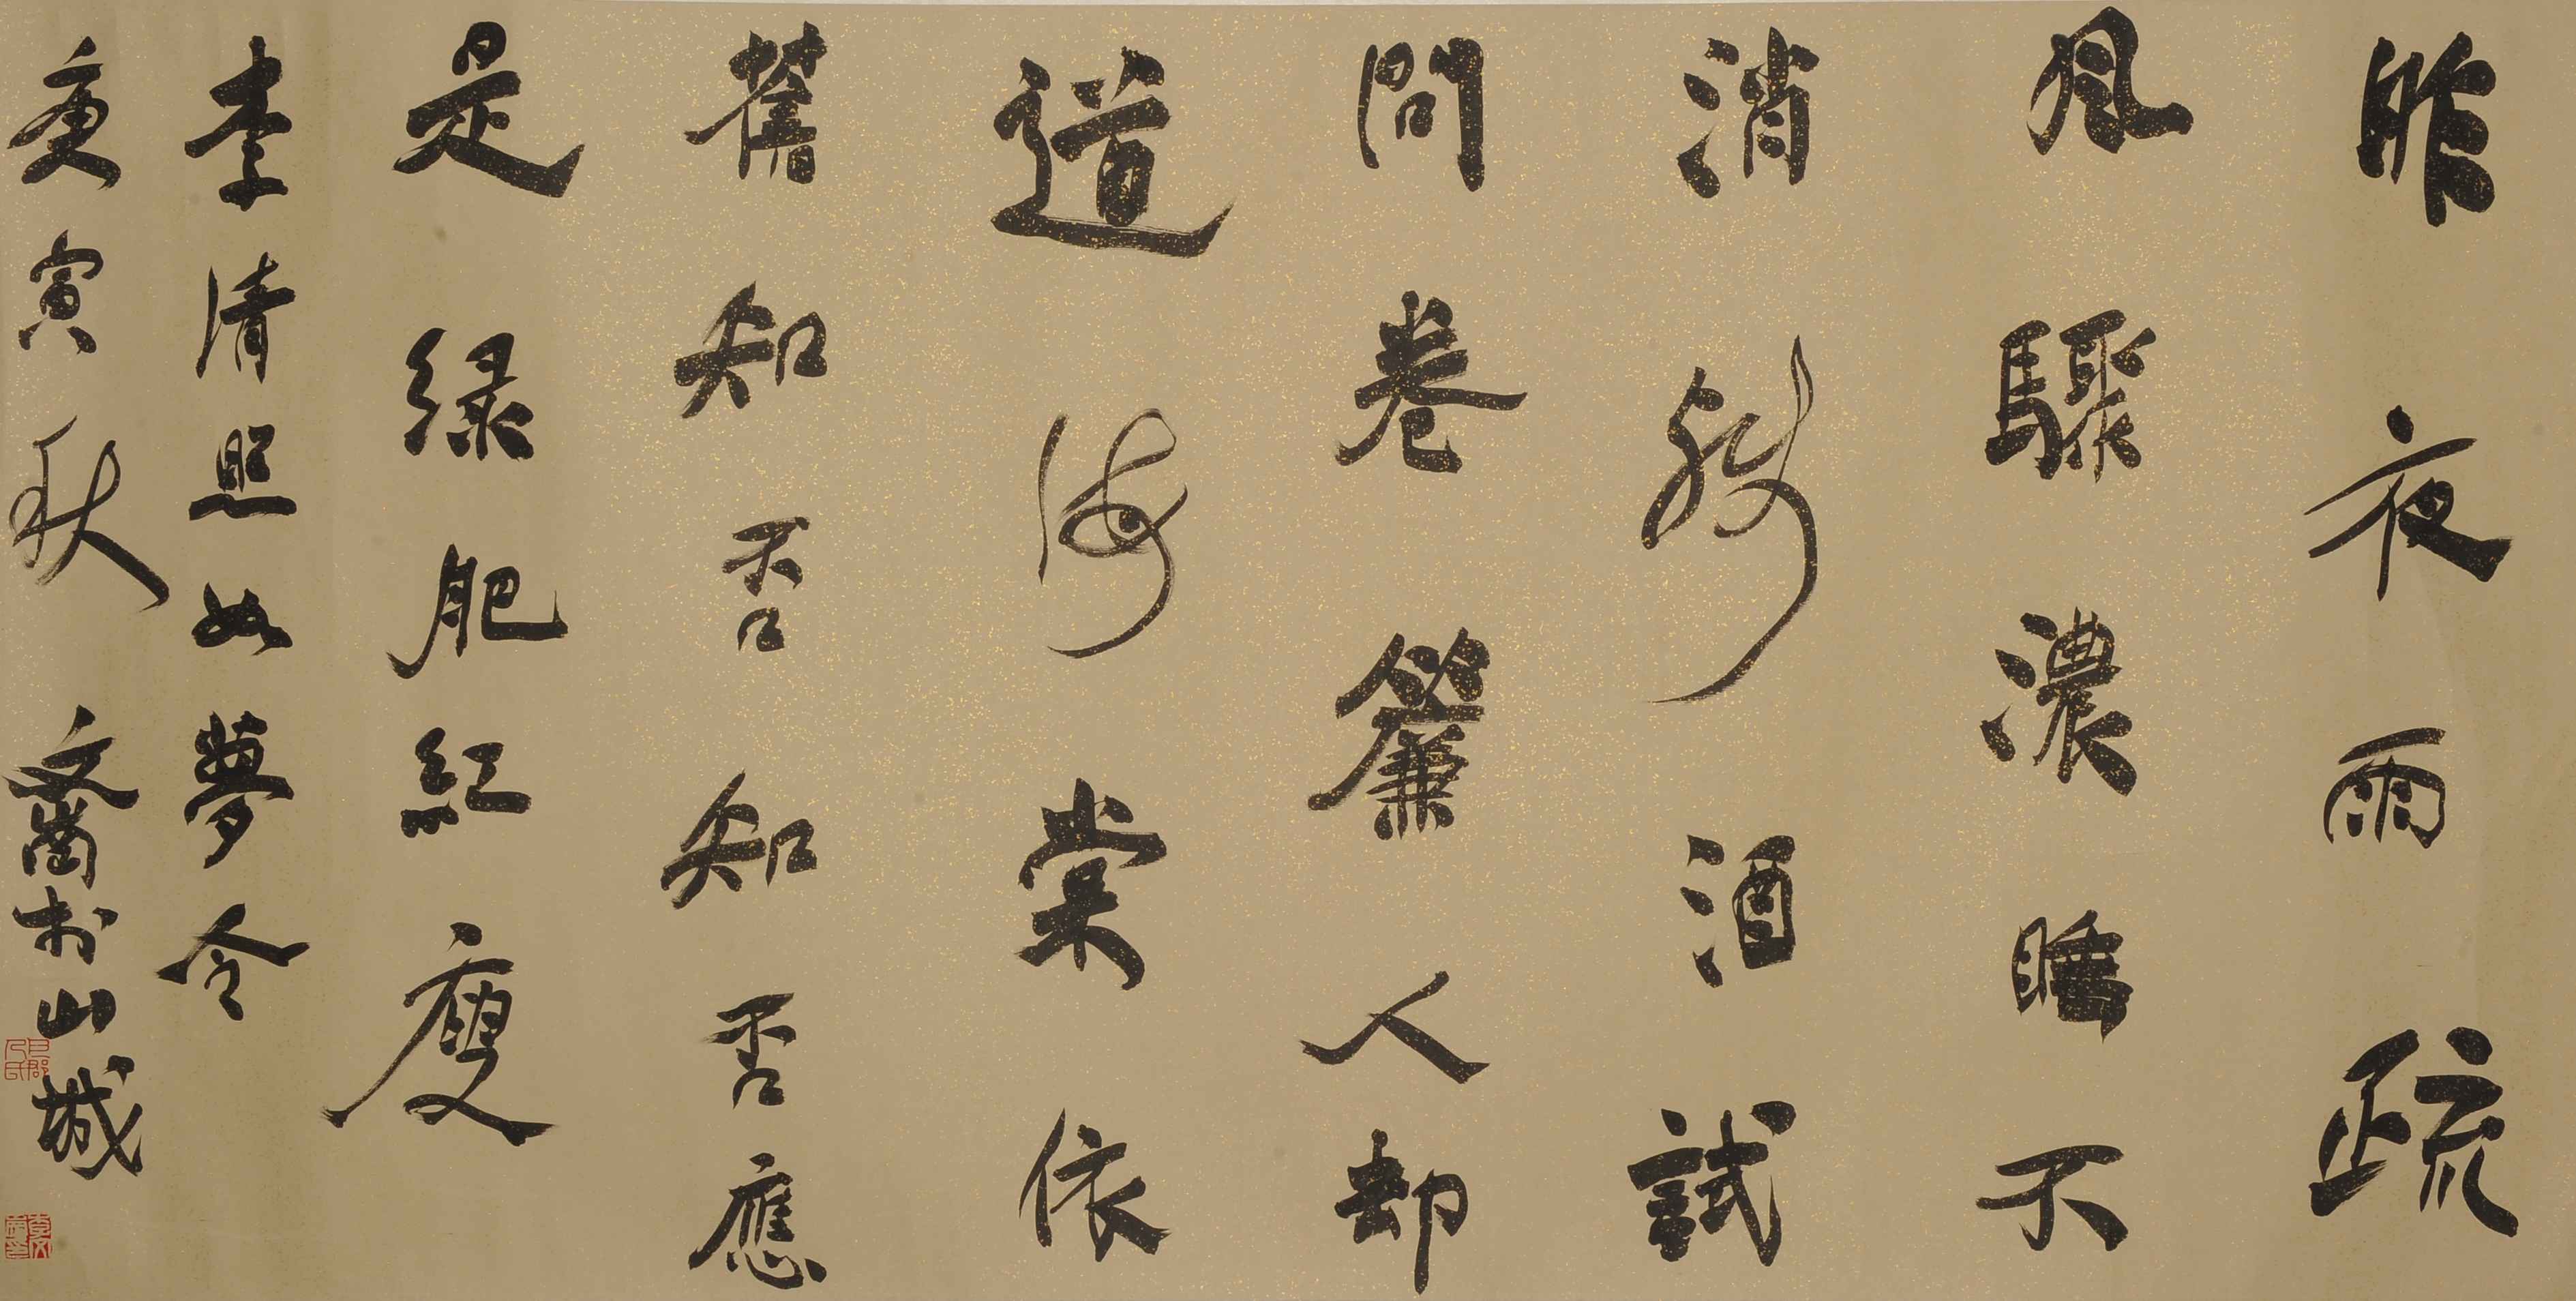 昨夜雨疏
風驟濃睡不
消殘酒試
問卷簾人却
道海棠依
舊知否知否應
是緑肥紅瘦
李清照如夢令
庚寅秋 文齋书山城